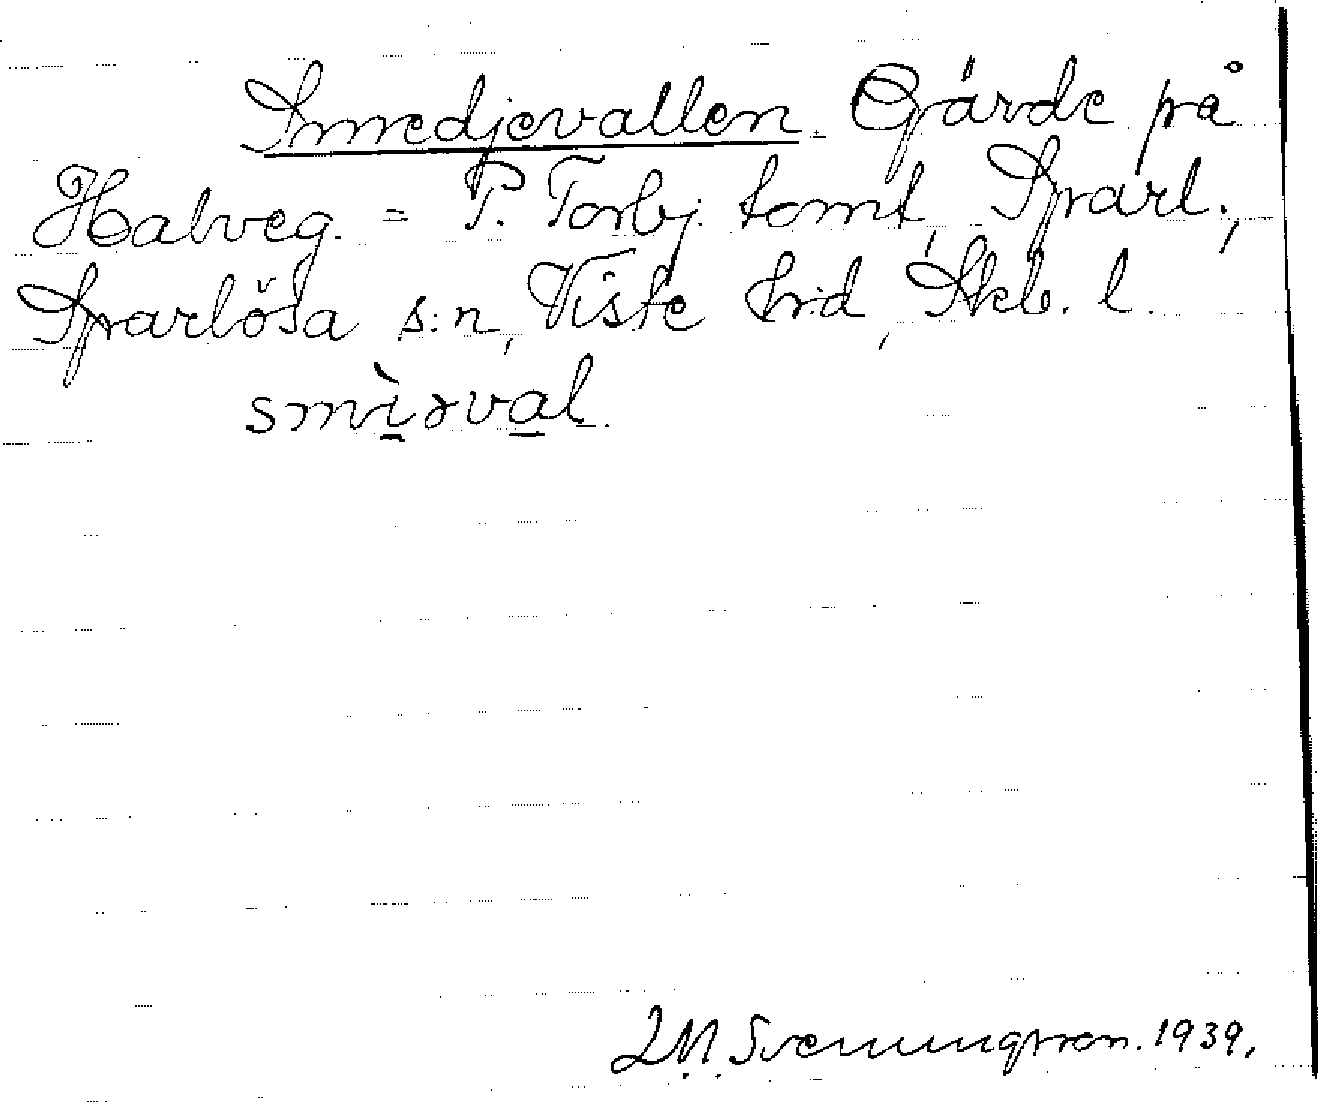 Smedjevallen. Gärde på
Halveg. = P. Torbj. tomt, Sparl.,
Sparlösa s:n, Viste hrd, Skb. l.
smìɔval.
L M. Svenungsson. 1939.